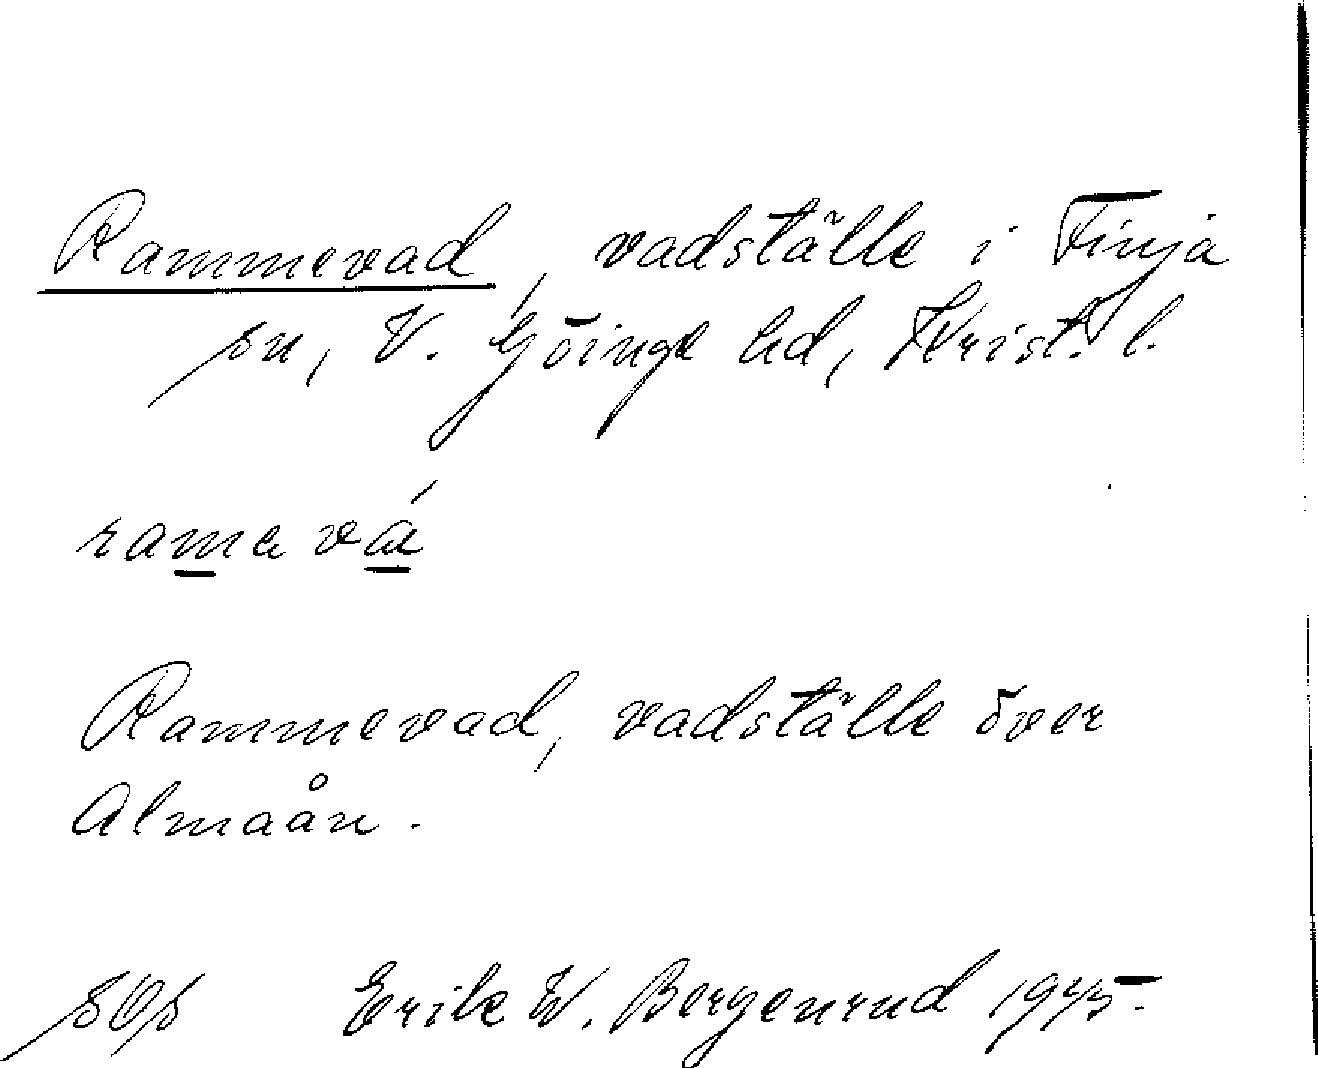 Rammevad, vadställe i Finja
sn, V. Göinge hd, Krist. l.
ramevá
Rammevad, vadställe över
Almaån.
sOs Erik W. Bergenrud 1945.